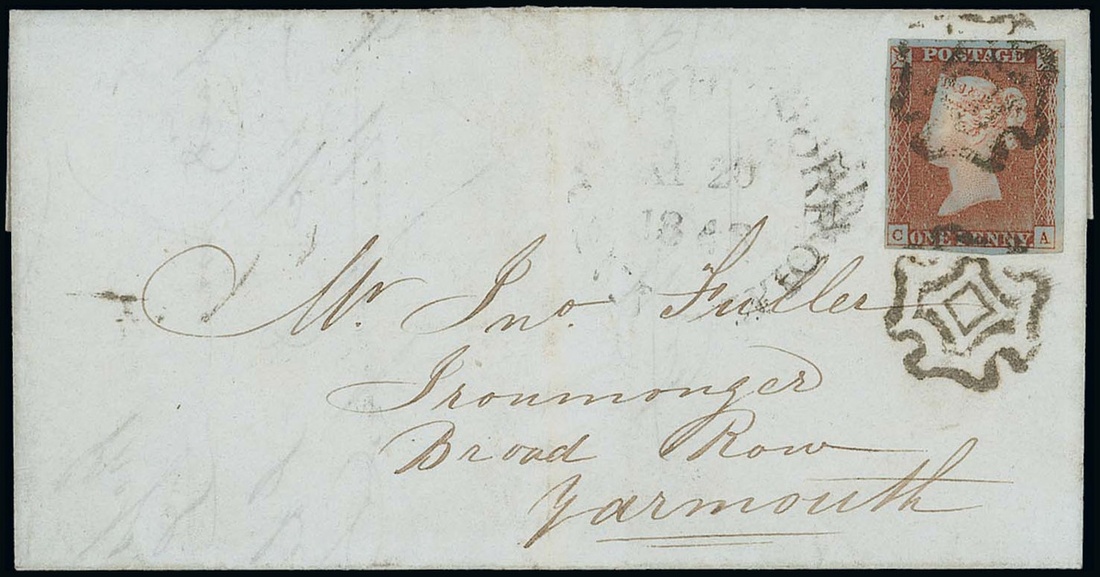 POSTAGE
C ONE PENNY A
20
184
Mr. Jno. Fuller
Ironmonger
Broad Row
Yarmouth